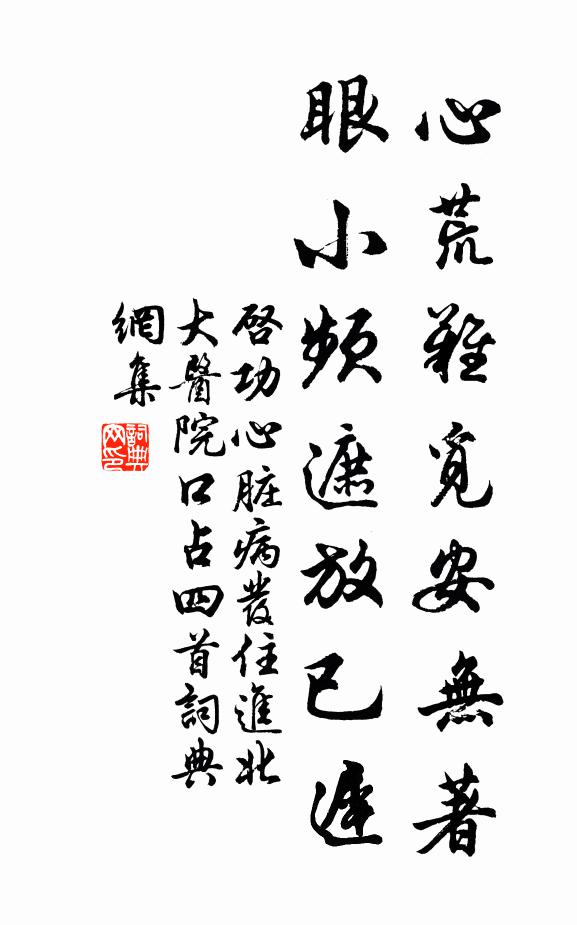 心荒難覓安無著
眼小頻遮放已遲
啓功心脏病發住進北
大醫院口占四首詞典
網集
詞典
网印